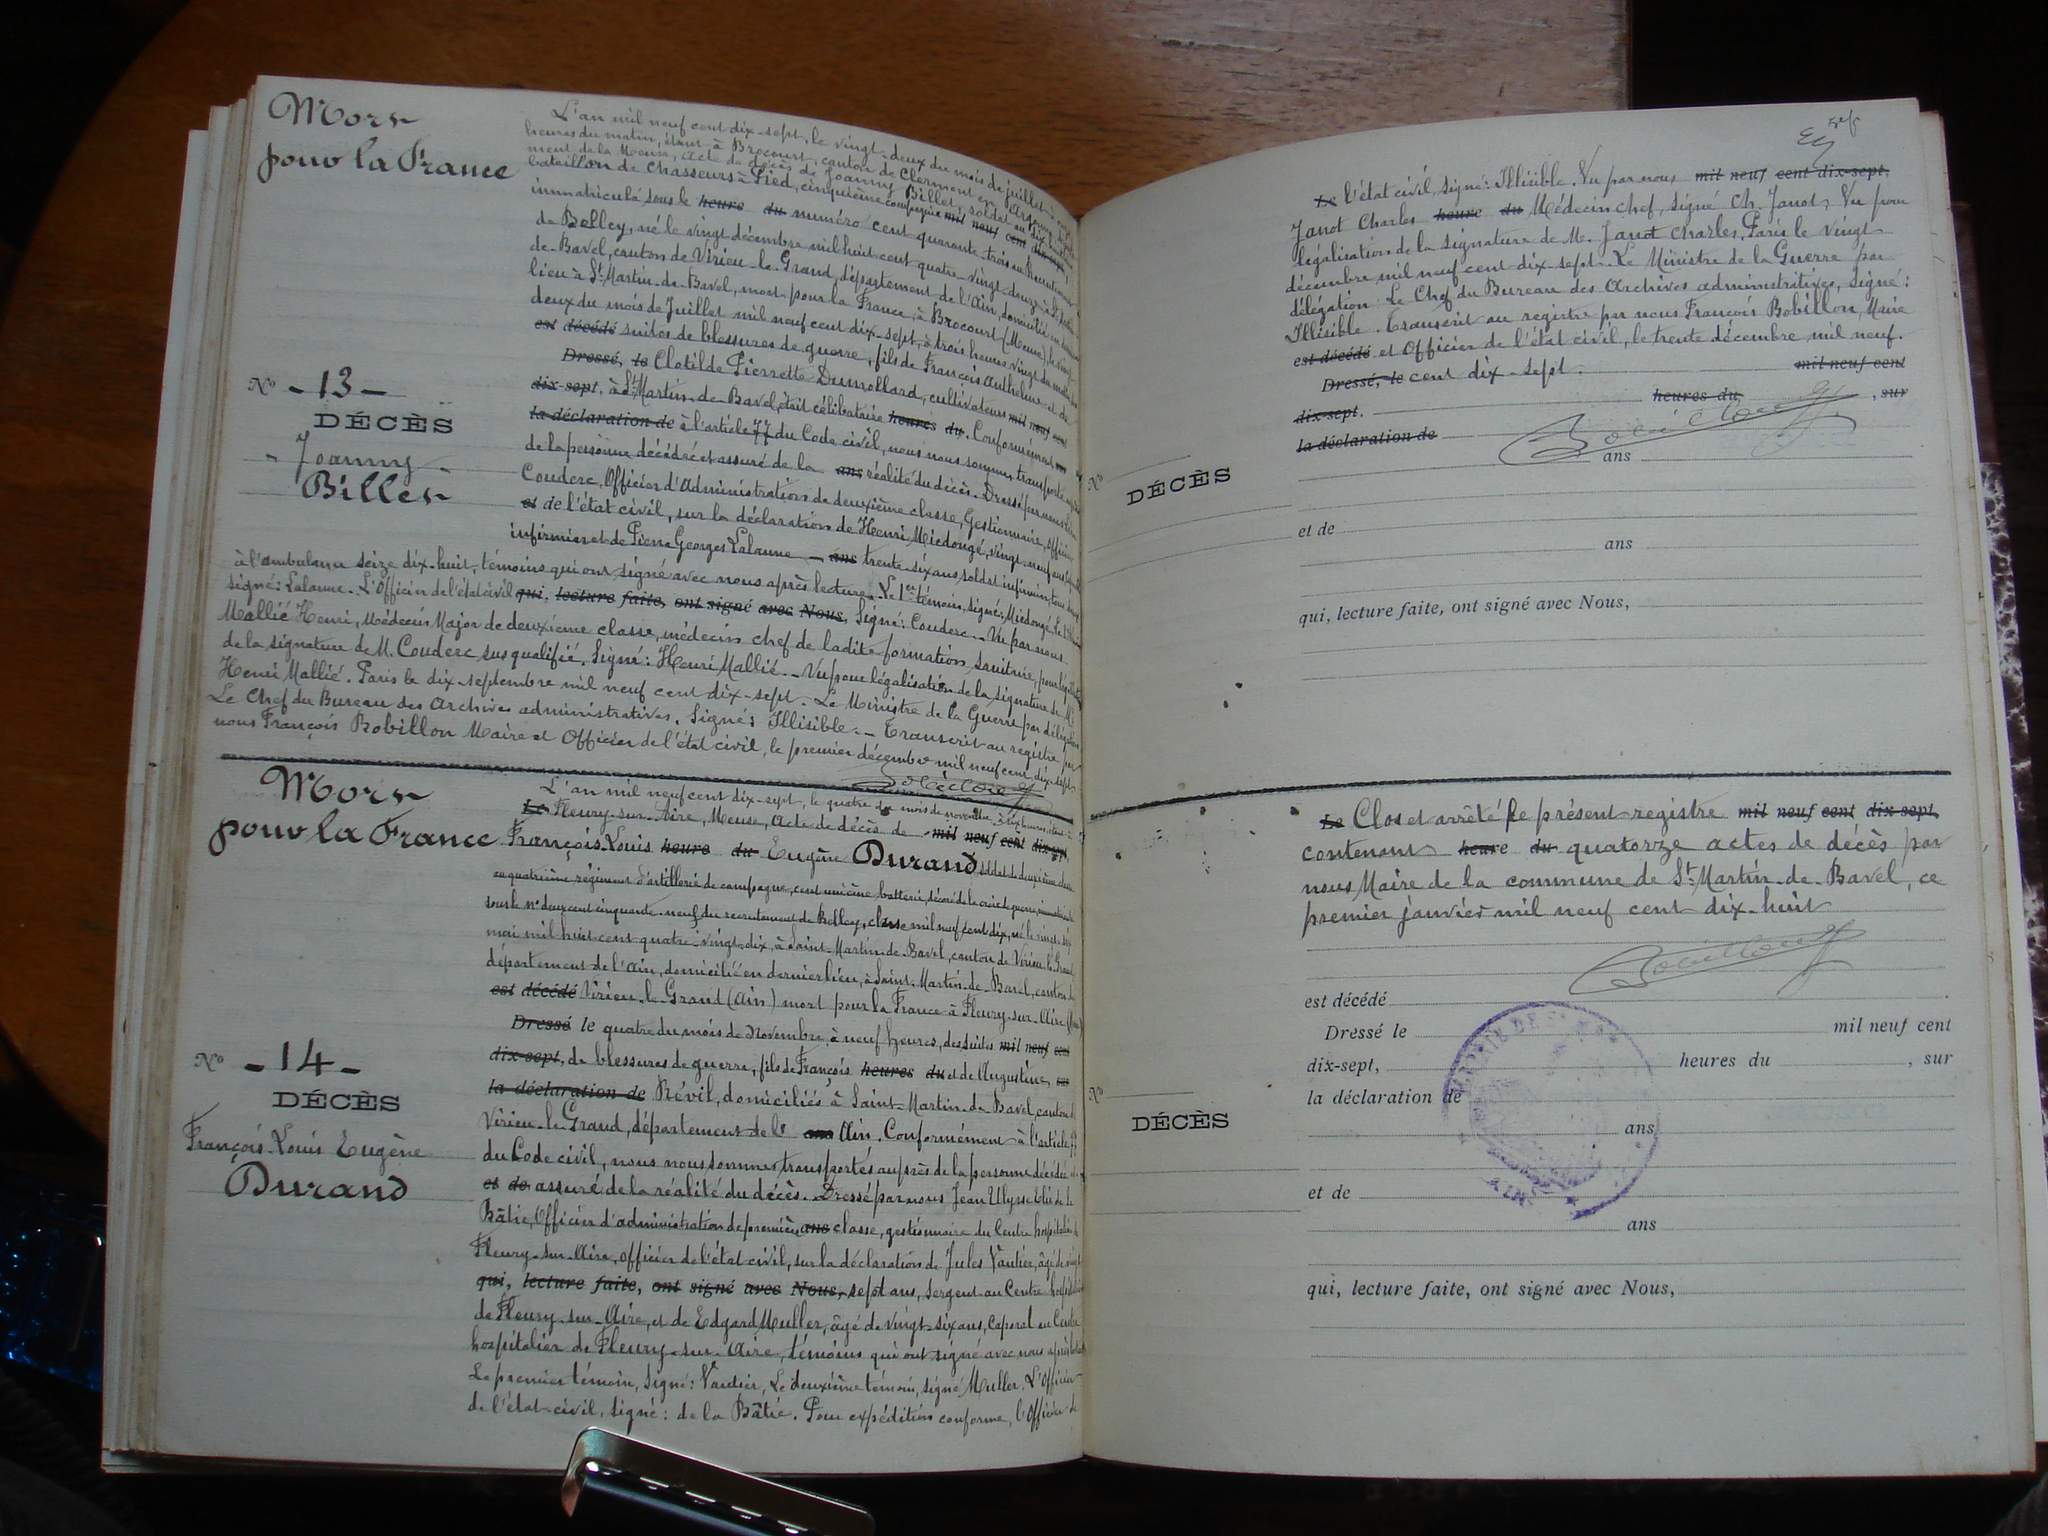 Mort
pour la France
L'an mil neuf cent dix-sept, le vingt-deux du mois de juillet à
heures du matin, étant à Brocourt, canton de Clermont en Argonne,
ment de la Meuse, Acte de décès de Joanny Billet, soldat au dix
bataillon de Chasseurs à Pied, cinquième compagnie mil neuf cent dix-sept,
immatriculé sous le heure du numéro cent quarante-trois au recrutement
de Belley, né le vingt décembre mil huit cent quatre-vingt-douze à St Martin
de-Bavel, canton de Virieu-le-Grand, département de l'Ain, domicilié en dernier
lieu à St Martin-de-Bavel, mort pour la France, à Brocourt (Meuse), le vingt
deux du mois de Juillet mil neuf cent dix-sept, à trois heures vingt du matin
est décédé suites de blessures de guerre, fils de François Anthelme et de
Dressé, le Clotilde Pierrette Dumollard, cultivateurs mil neuf cent
dix-sept, à St Martin-de-Bavel, était célibataire heures du. Conformément
la déclaration de à l'article 77 du Code civil, nous nous sommes transporté auprès
de la personne décédée et assuré de la ans réalité du décès. Dressé par nous
Couderc, Officier d'Administration de deuxième classe, Gestionnaire, Officier
et de l'état civil, sur la déclaration de Henri Miedougé, vingt-neuf ans
infirmier et de Pierre Georges Lalanne ans trente-six ans soldat infirmier, tous deux
à l'ambulance seize dix-huit, témoins qui ont signé avec nous après lecture. Le 1er témoin, signé: Miedougé, Le
signé: Lalanne. L'Officier de l'état civil qui, lecture faite, ont signé avec Nous, Signé: Couderc. Vu par nous
Mallié Henri, Médecin Major de deuxième classe, médecin chef de ladite formation sanitaire, pour légalisation
de la signature de M. Couderc sus qualifié. Signé: Henri Mallié. Vu pour légalisation de la signature de M.
Henri Mallié. Paris le dix-septembre mil neuf cent dix-sept. Le Ministre de la Guerre par délégation
Le Chef du Bureau des Archives administratives. Signé: Illisible. Transcrit au registre par
nous François Bobillon Maire et Officier de l'état civil, le premier décembre mil neuf cent dix-sept
Bobillon
No -13-
DÉCÈS
Joanny
Billet
Mort
pour la France
L'an mil neuf cent dix-sept, le quatre du mois de novembre, à dix heures, étant à
Le Fleury-sur-Aire, Meuse, Acte de décès de mil neuf cent dix-sept,
François Louis heure du Eugène Durand, soldat de deuxième classe
au quatrième régiment d'artillerie de campagne, cent unième batterie, décoré de la croix de guerre, immatriculé
sous le No deux cent cinquante-neuf du recrutement de Belley, classe mil neuf cent dix, né le vingt-six
mai mil huit cent quatre-vingt-dix, à Saint-Martin-de-Bavel, canton de Virieu-le-Grand
département de l'Ain, domicilié en dernier lieu, à Saint-Martin-de-Bavel, canton de
est décédé Virieu-le-Grand (Ain) mort pour la France à Fleury-sur-Aire
Dressé le quatre du mois de Novembre à neuf heures, des suites mil neuf cent
dix-sept, de blessures de guerre, fils de François heures du et de Augustine
la déclaration de Révil, domiciliés à Saint-Martin-de-Bavel, canton de
Virieu-le-Grand, département de l' ans Ain. Conformément à l'article 77
du Code civil, nous nous sommes transportés auprès de la personne décédée et
et de assuré de la réalité du décès. Dressé par nous Jean Ulysse de la
Bâtie, Officier d'administration de première ans classe, gestionnaire du Centre hospitalier de
Fleury-sur-Aire, officier de l'état civil, sur la déclaration de Jules Vautier, âgé de vingt
qui, lecture faite, ont signé avec Nous, sept ans, Sergent au Centre hospitalier
de Fleury-sur-Aire, et de Edgard Muller, âgé de vingt-six ans, Caporal au Centre
hospitalier de Fleury-sur-Aire, témoins qui ont signé avec nous après lecture
Le premier témoin, Signé: Vautier, Le deuxième témoin, signé Muller. L'Officier
de l'état-civil, signé: de la Bâtie. Pour expédition conforme, l'Officier de
No -14-
DÉCÈS
François Louis Eugène
Durand
Le l'état civil, signé: Illisible. Vu par nous mil neuf cent dix-sept,
Janot Charles heure du Médecin chef, signé Ch. Janot, Vu pour
légalisation de la signature de M. Janot Charles, Paris le vingt
décembre mil neuf cent dix-sept. Le Ministre de la Guerre par
délégation Le Chef du Bureau des Archives administratives, Signé:
Illisible. Transcrit au registre par nous François Bobillon, Maire
est décédé et Officier de l'état civil, le trente décembre mil neuf.
Dressé, le cent dix-sept. mil neuf cent
dix-sept. heures du , sur
la déclaration de Bobillon
ans
No
DÉCÈS
et de
ans
qui, lecture faite, ont signé avec Nous,
Le Clos et arrêté le présent registre mil neuf cent dix-sept,
contenant heure du quatorze actes de décès par
nous Maire de la commune de St-Martin-de-Bavel, ce
premier janvier mil neuf cent dix-huit
Bobillon
est décédé
Dressé le mil neuf cent
dix-sept, heures du , sur
la déclaration de
ans
No
DÉCÈS
et de
ans
qui, lecture faite, ont signé avec Nous,